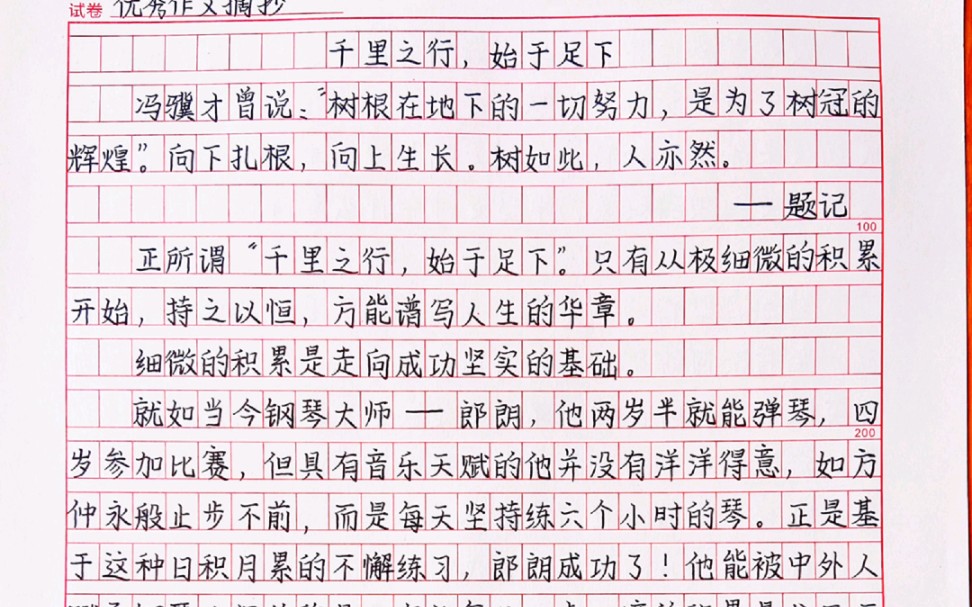 试卷 优秀作文摘抄
千里之行，始于足下
冯骥才曾说：“树根在地下的一切努力，是为了树冠的
辉煌”。向下扎根，向上生长。树如此，人亦然。
— 题记
100
正所谓“千里之行，始于足下”。只有从极细微的积累
开始，持之以恒，方能谱写人生的华章。
细微的积累是走向成功坚实的基础。
就如当今钢琴大师 — 郎朗，他两岁半就能弹琴，四
200
岁参加比赛，但具有音乐天赋的他并没有洋洋得意，如方
仲永般止步不前，而是每天坚持练六个小时的琴。正是基
于这种日积月累的不懈练习，郎朗成功了！他能被中外人